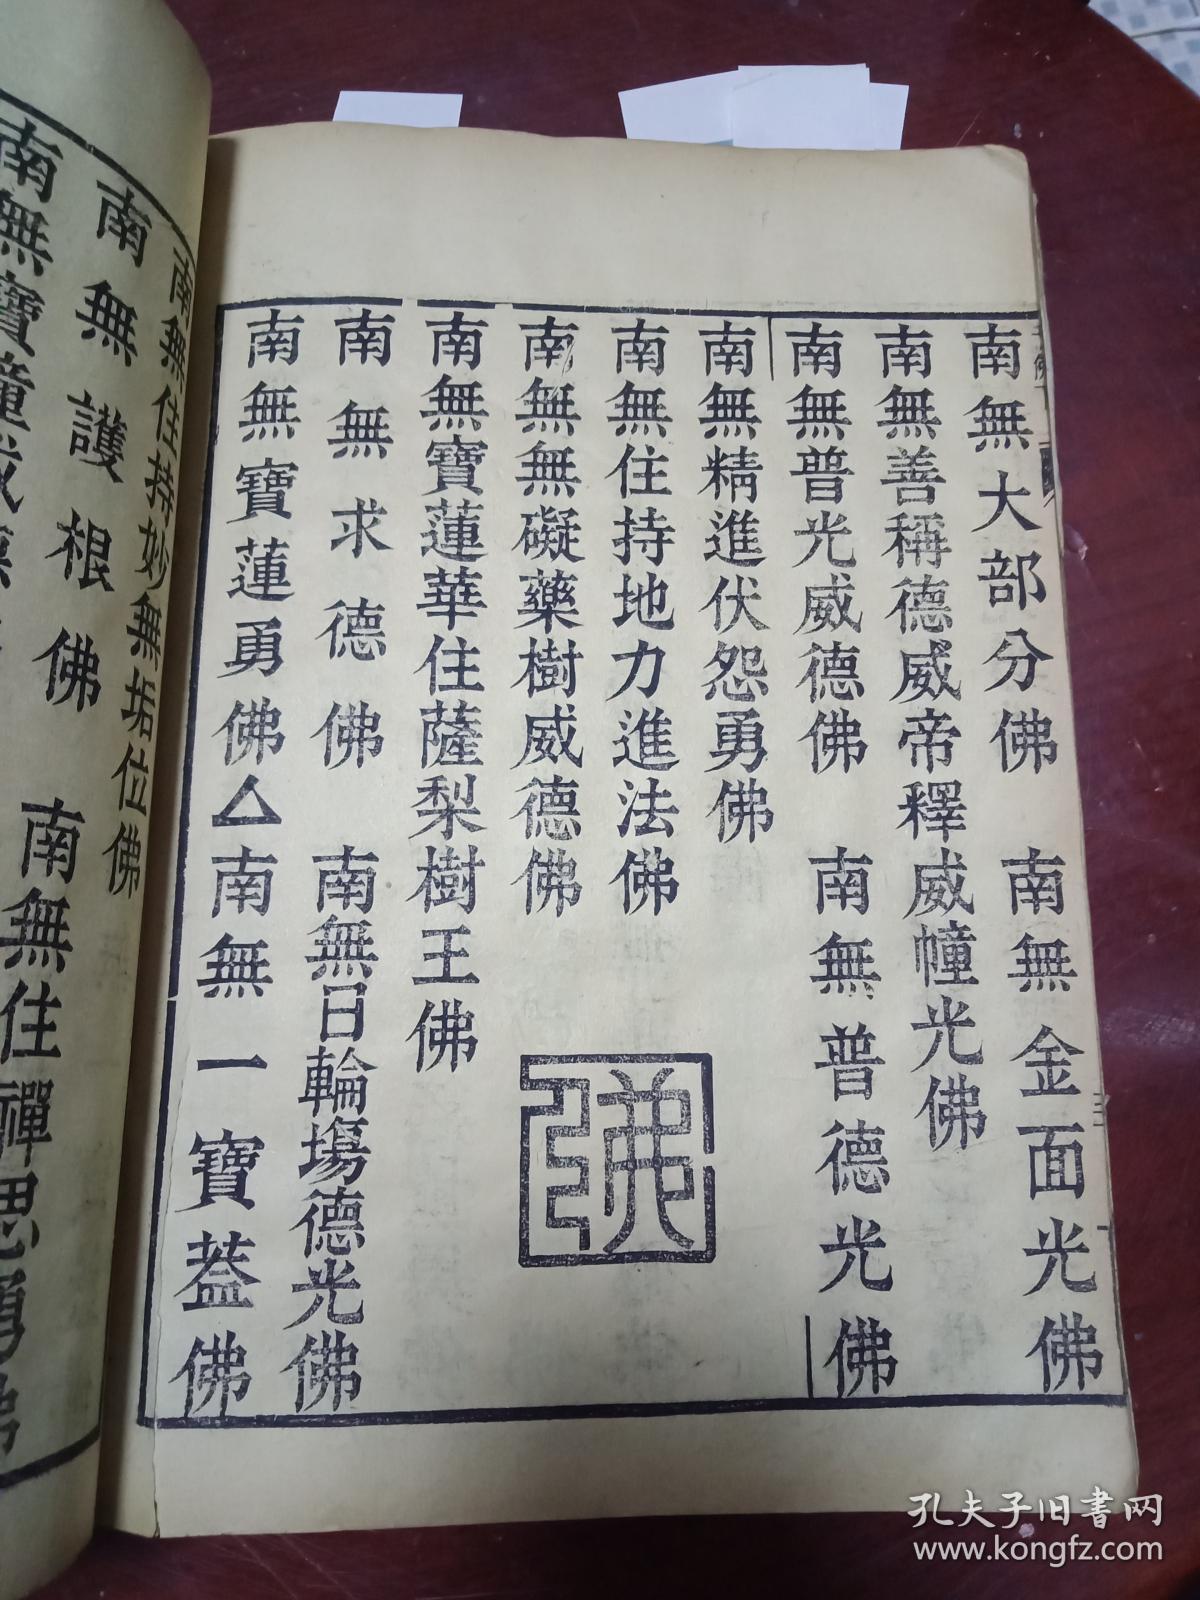 南無大部分佛　南無金面光佛
南無善稱德威帝釋威幢光佛
南無普光威德佛　南無普德光佛
南無精進伏怨勇佛
南無住持地力進法佛
南無無礙藥樹威德佛
南無寶蓮華住薩梨樹王佛
南無求德佛　南無日輪場德光佛
南無寶蓮勇佛△南無一寶蓋佛
佛
南無住持妙無垢位佛
南無護根佛　南無住禪思勇佛
南無寶幢威德
孔夫子旧書网
www.kongfz.com